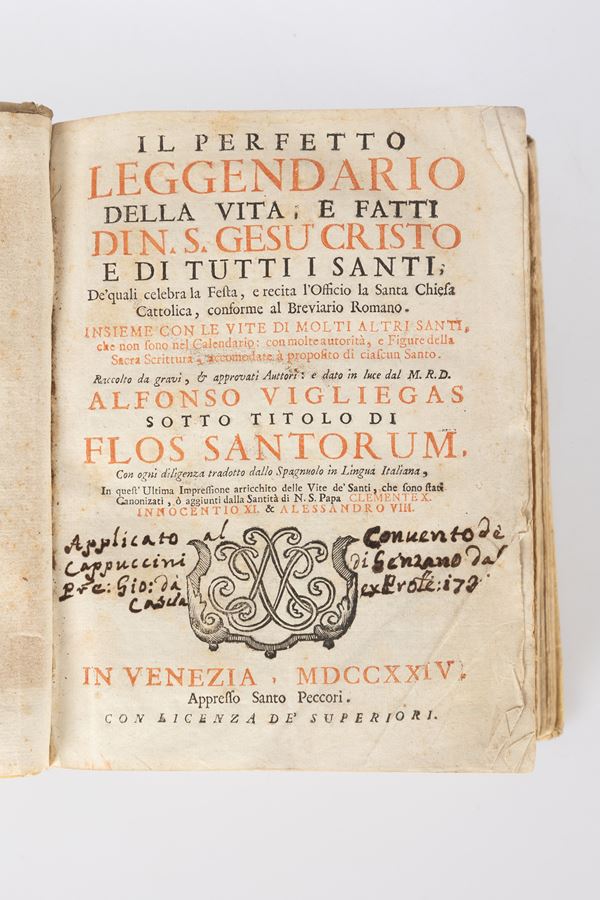 IL PERFETTO
LEGGENDARIO
DELLA VITA, E FATTI
DI N. S. GESU' CRISTO
E DI TUTTI I SANTI,
De'quali celebra la Festa, e recita l'Officio la Santa Chiesa
Cattolica, conforme al Breviario Romano.
INSIEME CON LE VITE DI MOLTI ALTRI SANTI,
che non sono nel Calendario: con molte autorità, e Figure della
Sacra Scrittura, accomodate à proposito di ciascun Santo.
Raccolto da gravi, & approvati Auttori: e dato in luce dal M. R. D.
ALFONSO VIGLIEGAS
SOTTO TITOLO DI
FLOS SANTORUM,
Con ogni diligenza tradotto dallo Spagnuolo in Lingua Italiana,
In quest' Ultima Impressione arricchito delle Vite de' Santi, che sono stati
Canonizati, ò aggiunti dalla Santità di N. S. Papa CLEMENTE X.
INNOCENTIO XI. & ALESSANDRO VIII.
Applicato al Convento de
Cappuccini di Genzano dal
Pre: Gio: da ex Prole: 173
IN VENEZIA, MDCCXXIV.
Appresso Santo Peccori.
CON LICENZA DE' SUPERIORI.